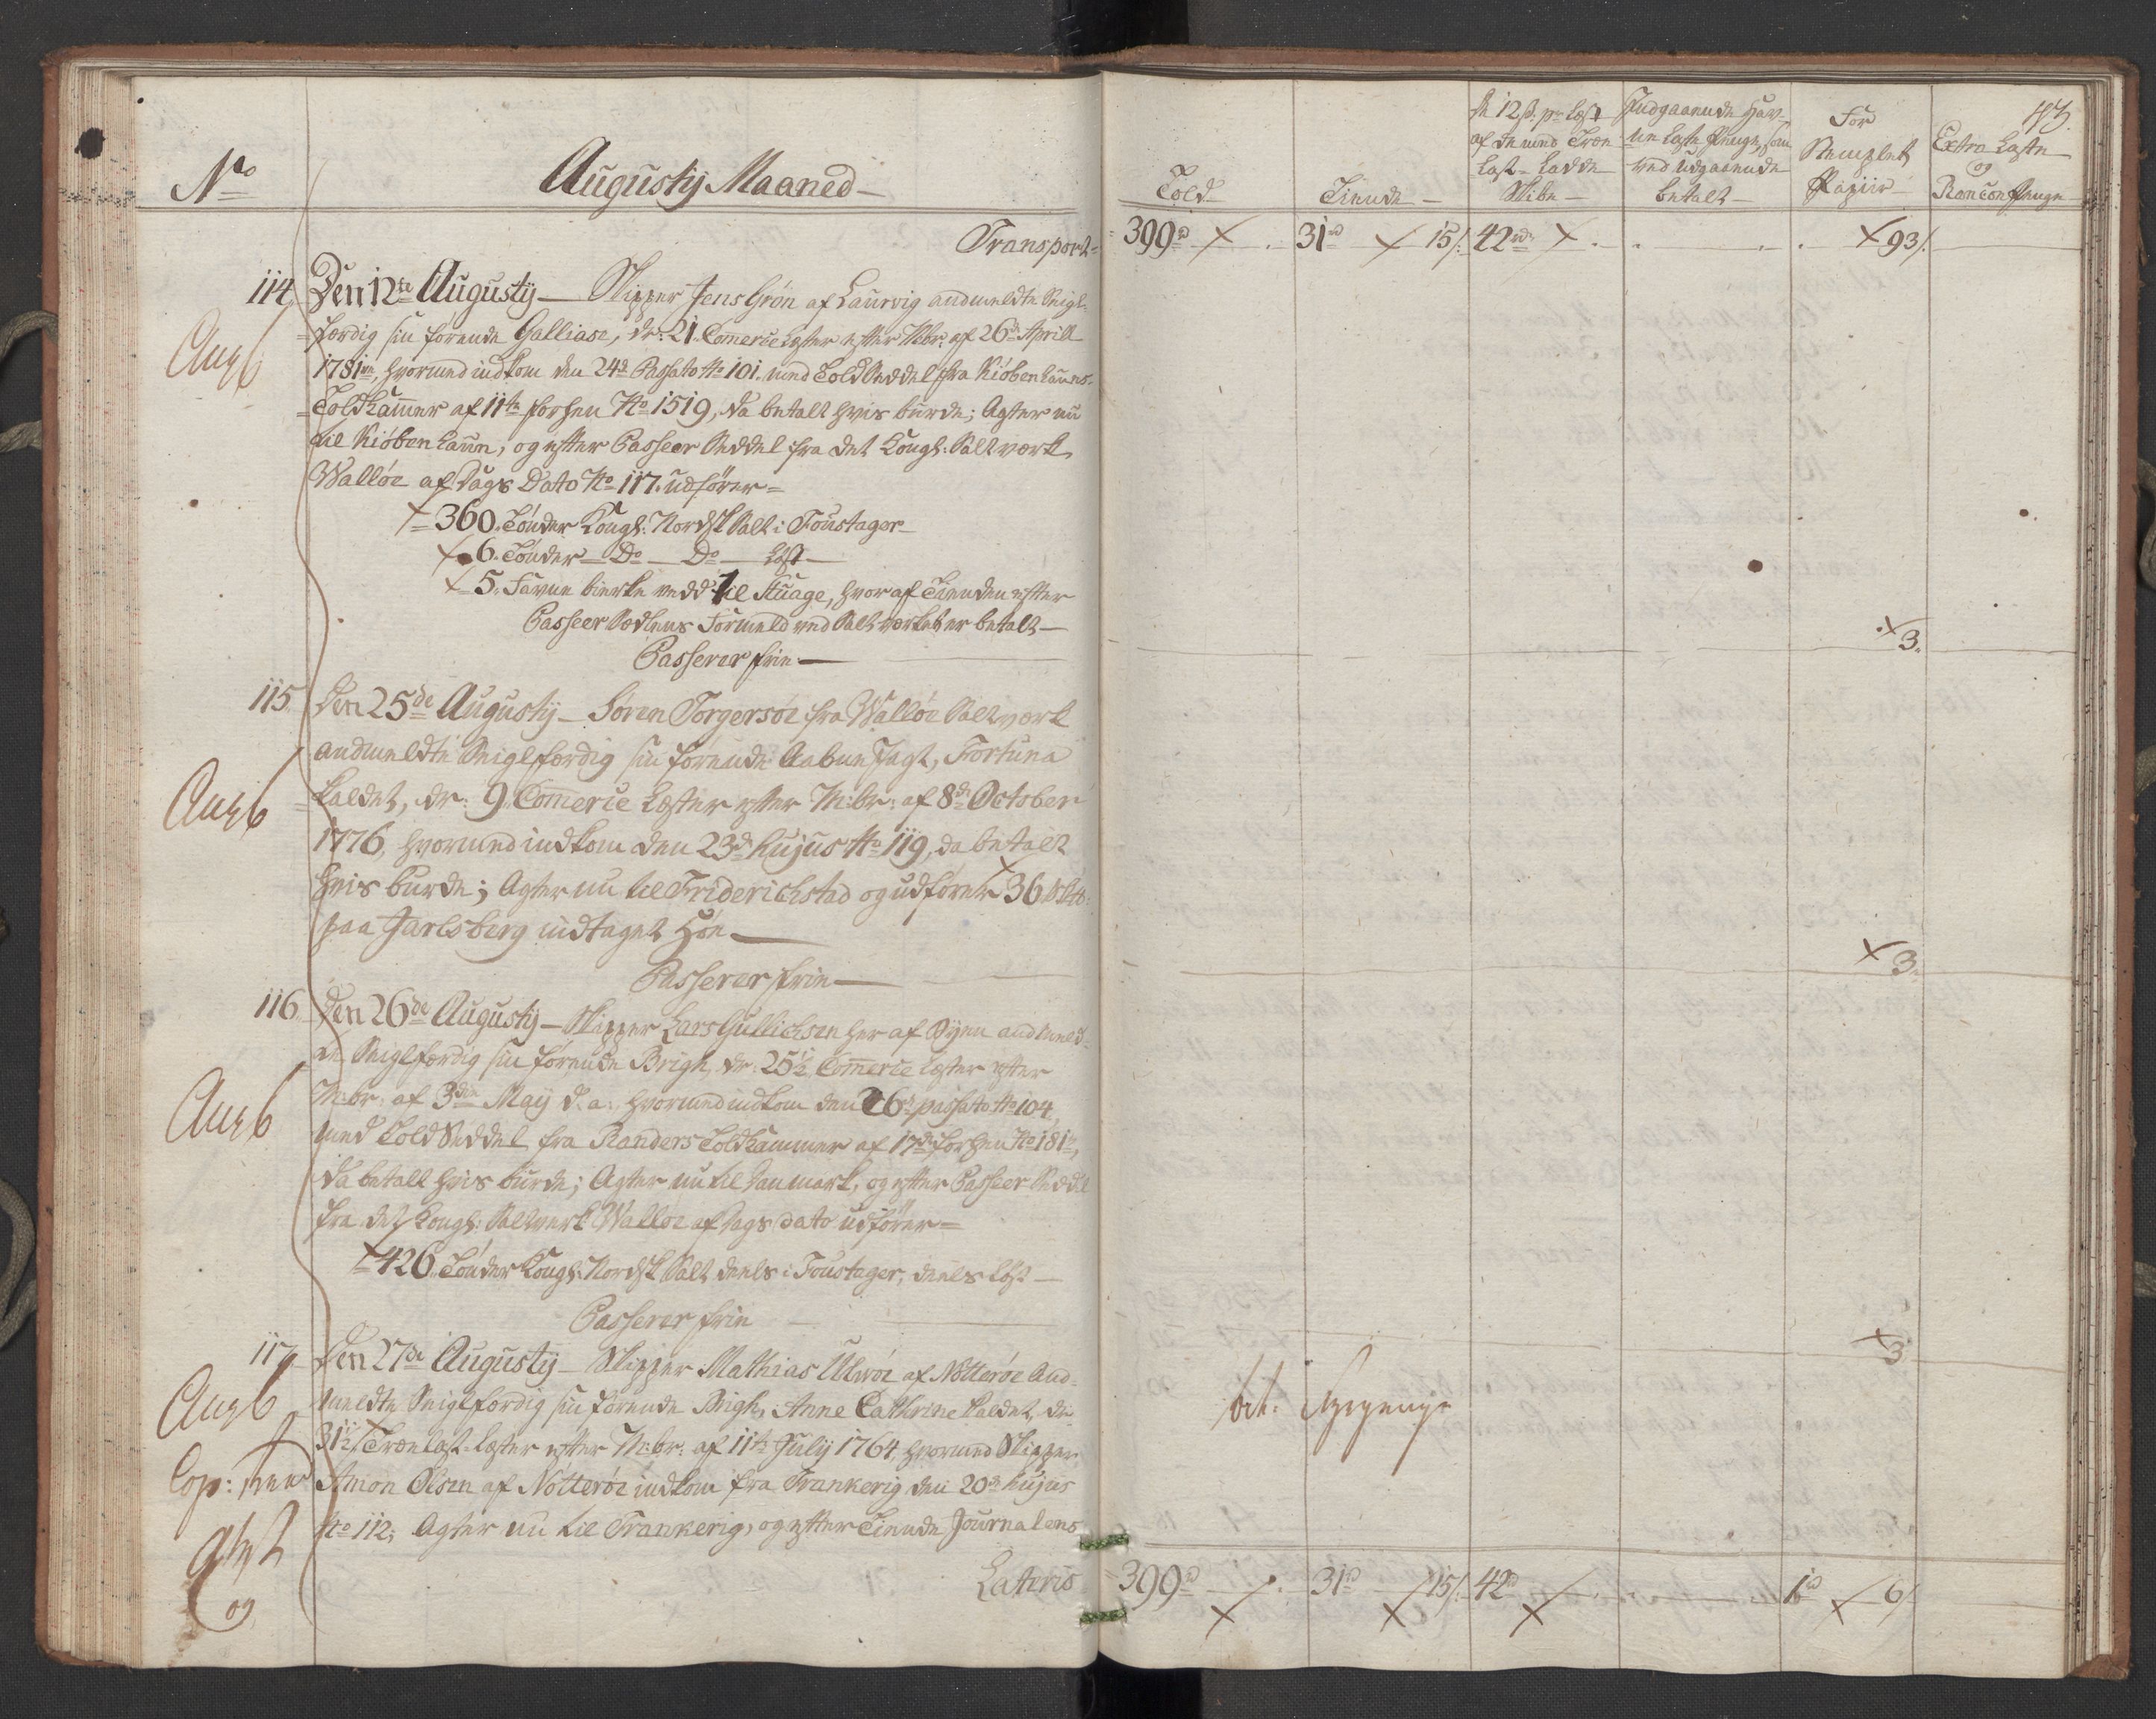 No
Augustÿ Maaned
Transport
114. Den 12te Augustÿ Skipper Jens Grøn af Laurvig andmeldte Seigl-
færdig sin førende Galliase, dr: 21 Comerce Læster efter Mbr: af 26de Aprill
1781, hvormed indkom den 24de Passato No 101. med Told Seddel fra Kiøbenhauns
Toldkammer af 11te forhen No 1519, da betalt hvis burde; Agter nu
til Kiøbenhaun, og efter Passeer Seddel fra det Kongl: Saltværk
Walløe af Dags Dato No 117. udfører
360. Tønder Kongl: Nordsk Salt i Foustager
6. Tønder Do Do løst
5. Favne birke vedd til Stuage, hvoraf Tienden efter
Passeer Sedlens Formeld ved Saltværket er betalt
Passerer frie
115. Den 25de Augustÿ Søren Torgersøe fra Walløe Saltværk
andmeldte Seiglfærdig sin førende Aabne Jagt, Fortuna
kaldet, dr: 9. Comerce Læster efter M:br: af 8de October
1776, hvormed indkom den 23de hujus No 119, da betalt
hvis burde; Agter nu til Friderichstad og udfører 36
paa Jarlsberg indtaget Høe
Passerer frie
116. Den 26de Augustÿ Skipper Lars Gullichsen her af Byen andmeld-
te Seiglfærdig sin førende Brigh, dr. 25½ Comerce Læster efter
M:br: af 3die Maÿ d: a: hvormed indkom den 26de passato No 104,
med Told Seddel fra Randers Toldkammer af 17de forhen No 181,
da betalt hvis burde; Agter nu til Danmark, og efter Passeer Seddel
fra det Kongl: Saltverk Walløe af Dags dato udfører
426. Tønder Kongl: Nordsk Salt deels i Foustager, deels løst
Passerer frie
117. Den 27de Augustÿ Skipper Mathias Ulvøe af Nøtterøe And-
meldte Seiglfærdig sin førende Brigh, Anne Cathrine kaldet, dr
31½ Trælast-Læster efter M:br: af 11te Julÿ 1764, hvormed Skipper
Simon Olsen af Nøtterøe indkom fra Frankerig den 20de hujus
No 112; Agter nu til Frankerig, og efter Tiende Journalens
Lateris
Aug 6
Aug 6
Aug 6
Aug 6
Cop:
og
113.
Told
Tiende
12 s. pr Læst
af de med Træ-
last-Ladde
Skibe
Indgaaende Hav-
ne Laste Penge, som
ved udgaaende
betalt
For
Stemplet
Papiir
Extra Laste
og
Rancon Penge
399 rd 31 rd 15 s. 42 rd 93 s.
3.
3.
3
399 rd 31 rd 15 s. 42 rd 1 rd 6 s.